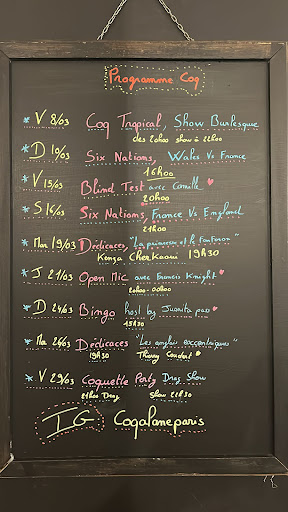 Programme Coq
* V 8/03 Coq Tropical, Show Burlesque
dès 20h00 show à 22h00
* D 10/03 Six Nations, Wales Vs France
16h00
* V 15/03 Blind Test avec Camille ♥
20h00
* S 16/03 Six Nations, France Vs England
21h00
* Mar 19/03 Dédicaces, "La princesse et le fanfaron"
Kenza Cherkaoui 19H30
* J 21/03 Open Mic avec Francis Knight
20h00 - 00h00
* D 24/03 Bingo host by Juanita
15H30
* Mar 26/03 Dédicaces "Les anglais excentriques"
19H30 Thierry
* V 29/03 Coquette Party Drag Show
21h00 Drag Show 21H30
IG Coqalaneparis